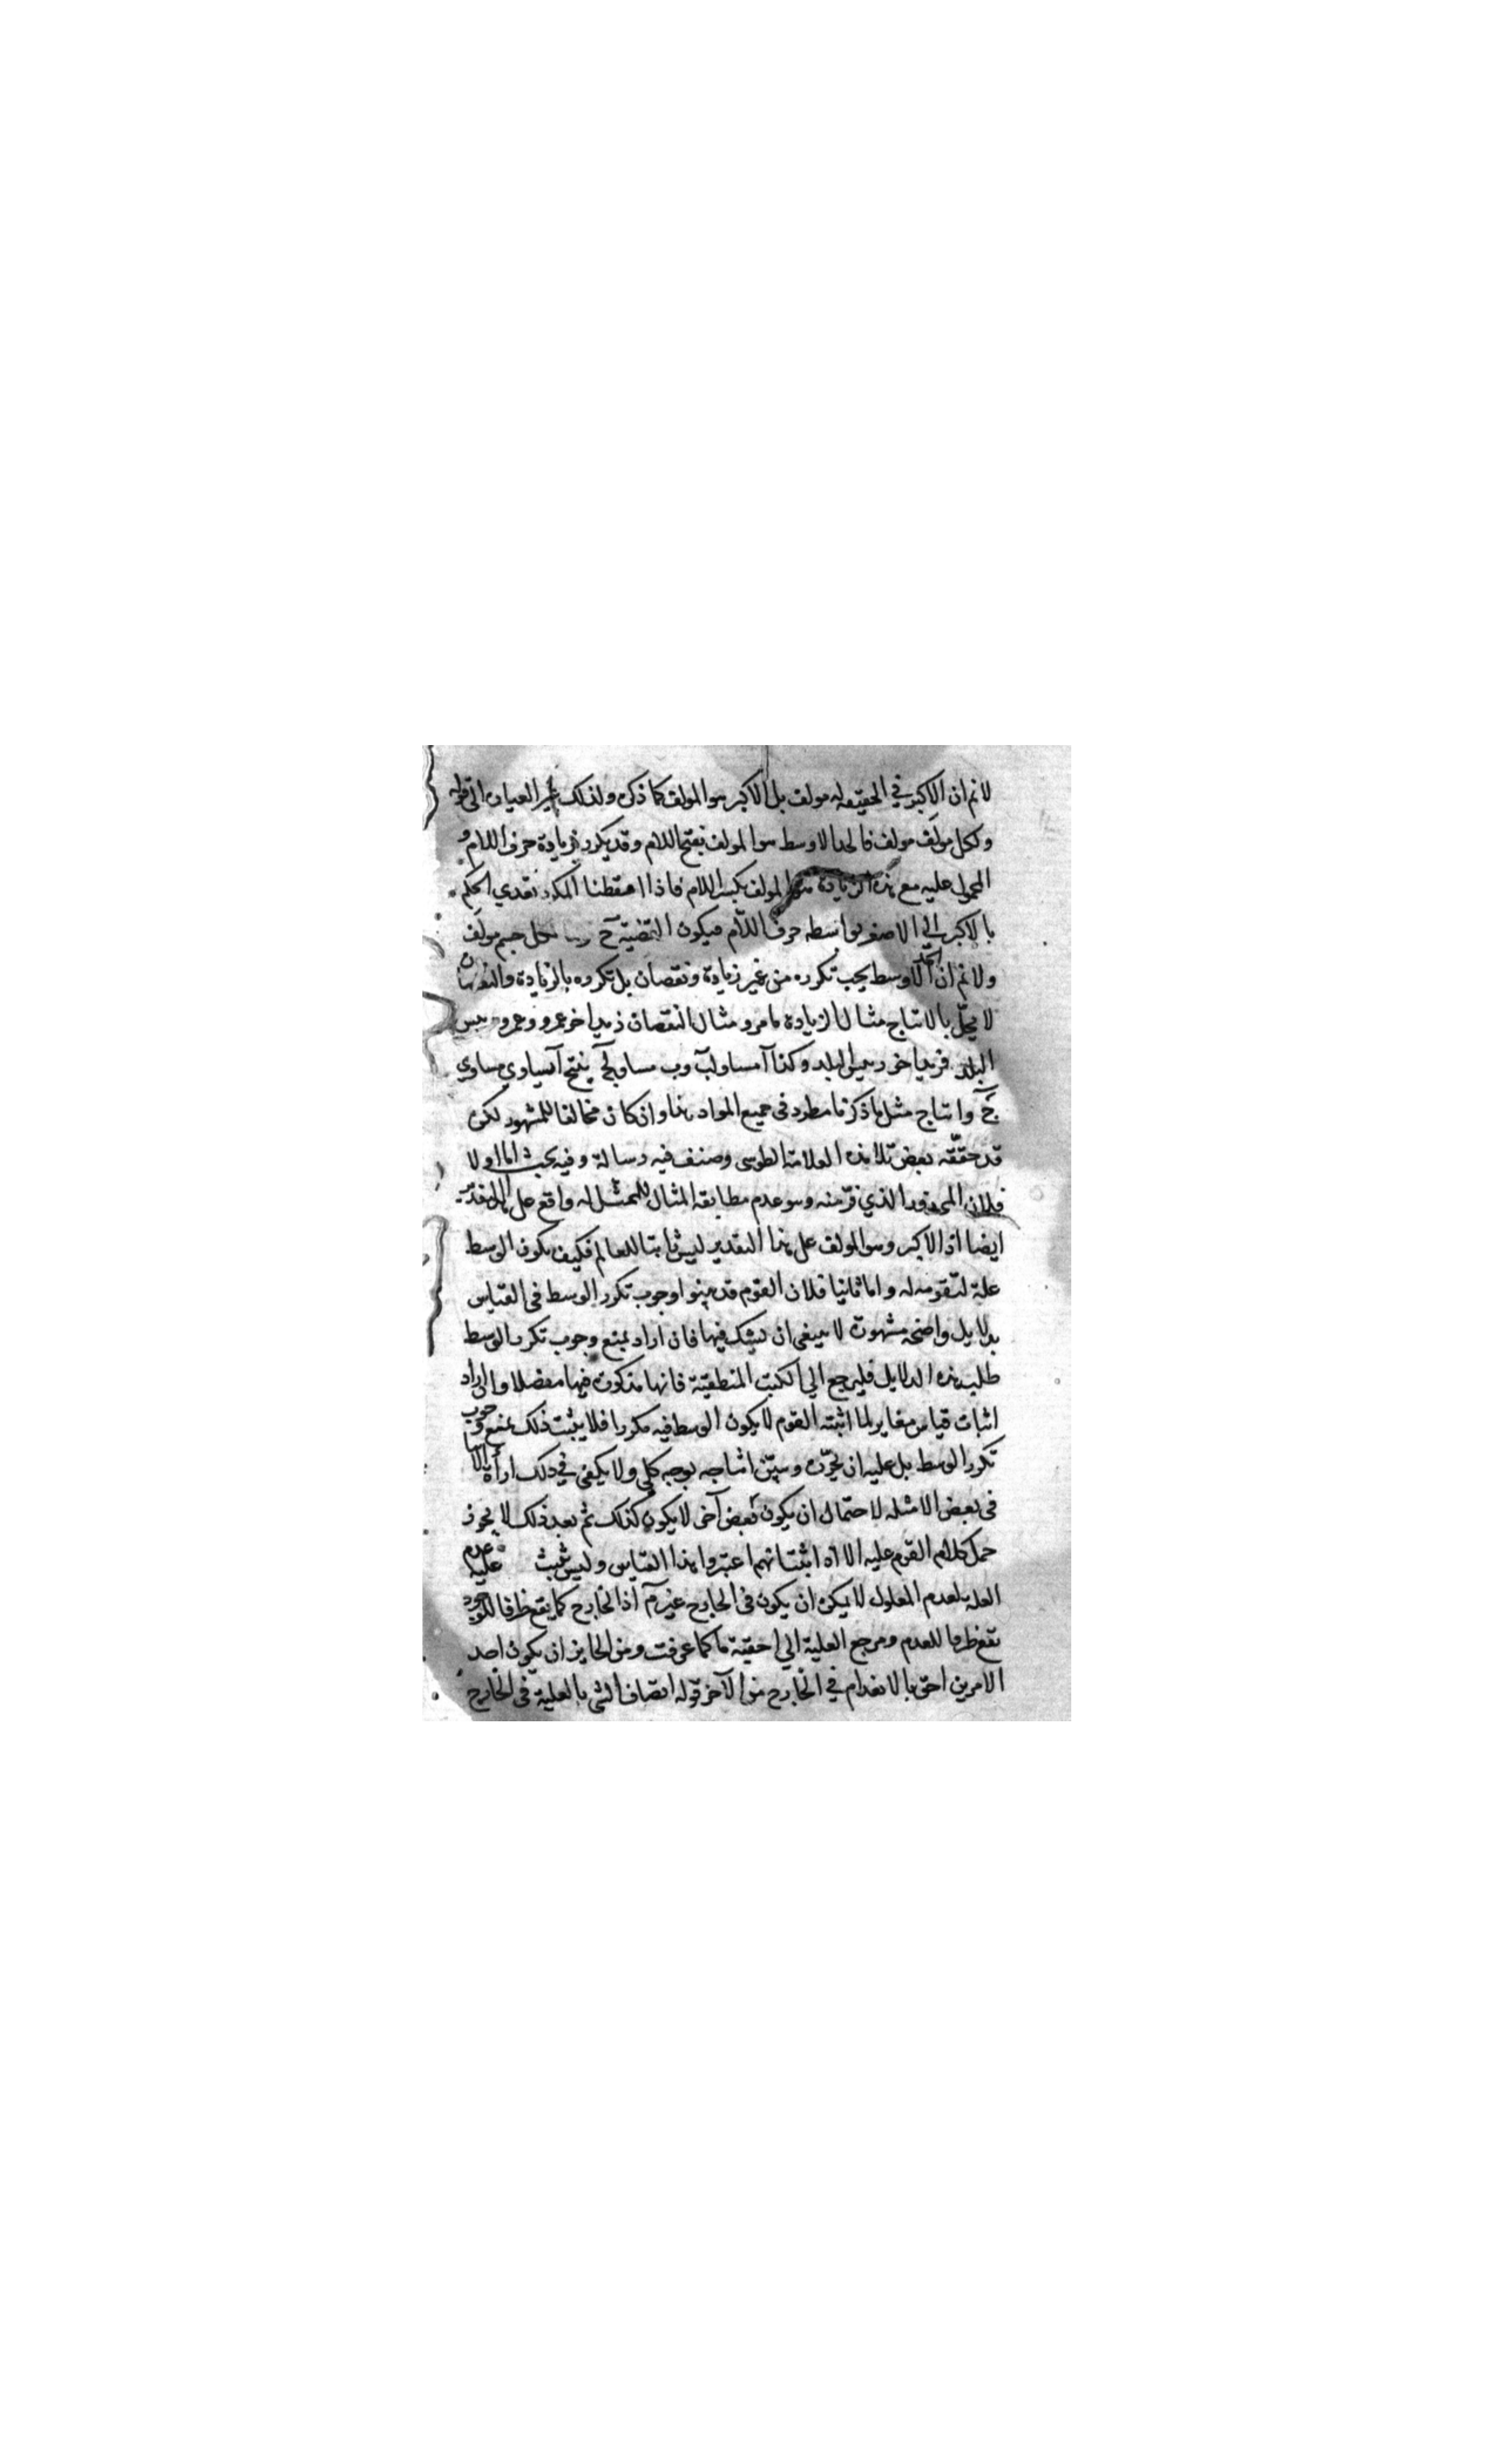 لا نم ان الاكبر في الحقيقه له مولف بل الاكبر هو المولف كما ذكره ولذلك غير العبارة الى قوله
ولكل مولَف مولف فالحد الاوسط هو المولف بفتح اللام وقد يكرر بزيادة حرف اللام و
المحمول عليه مع هذه الزيادة هو المولف بكسر اللام فاذا اسقطنا المكرر تعدي الحكم
بالاكبر الي الاصغر بواسطه حرف اللام فيكون القضية ح لكل جسم مولف
ولا نم ان الحد الاوسط يجب تكرره من غير زيادة ونقصان بل تكرره بالزيادة والنقصان
لا يخل بالانتاج مثال الزيادة ما مر ومثال النقصان زيد اخو عمرو وعمرو رييس
البلد فزيد اخو رييس البلد وكذا آ مساو لب وب مساو لج ينتج آ مساوي مساوي
ج وانتاج مثل ما ذكرنا مطرد في جميع المواد هذا وان كان مخالفا للمشهور لكن
قد حققه بعض تلامذه العلامة الطوسي وصنف فيه رسالة وفيه بحث اما اولا
فلان المحذور الذي فر منه وهو عدم مطابقه المثال للممثل له واقع على هذا التقدير
ايضا اذ الاكبر وهو المولف على هذا التقدير ليس ثابتا للعالم فكيف يكون الوسط
علة لثبوته له واما ثانيا فلان القوم قد بينوا وجوب تكرر الوسط في القياس
بدلايل واضحه مشهورة لا ينبغي ان يشك فيها فان اراد بمنع وجوب تكرر الوسط
طلب هذه الدلايل فليرجع الي الكتب المنطقية فانها مذكورة فيها مفصلا وان اراد
اثبات قياس مغاير لما اثبته القوم لا يكون الوسط فيه مكررا فلا يثبت ذلك بمنع وجوب
تكرر الوسط بل عليه ان يحرره ويبين انتاجه بوجه كلي ولا يكفي في ذلك
في بعض الامثله لاحتمال ان يكون بعض آخر لا يكون كذلك ثم بعد ذلك لا يجوز
حمل كلام القوم عليه الا اذا اثبت انهم اعتبروا هذا القياس وليس فليس علية عدم
العلة لعدم المعلول لا يمكن ان يكون في الخارج غير م اذ الخارج كما يقع ظرفا للوجود
يقع ظرفا للعدم ومرجع العلية الي احقية ما كما عرفت ومن الجايز ان يكون احد
الامرين احق بالانعدام في الخارج من الآخر قوله اتصاف الشي بالعلية في الخارج